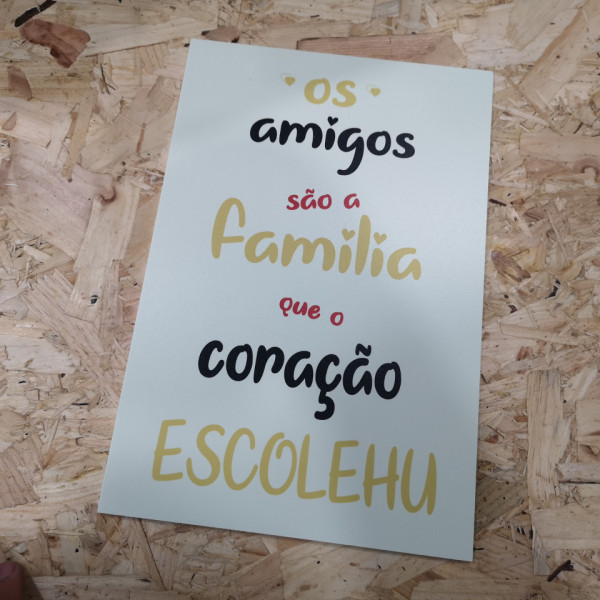 os
amigos
são a
familia
que o
coração
ESCOLEHU